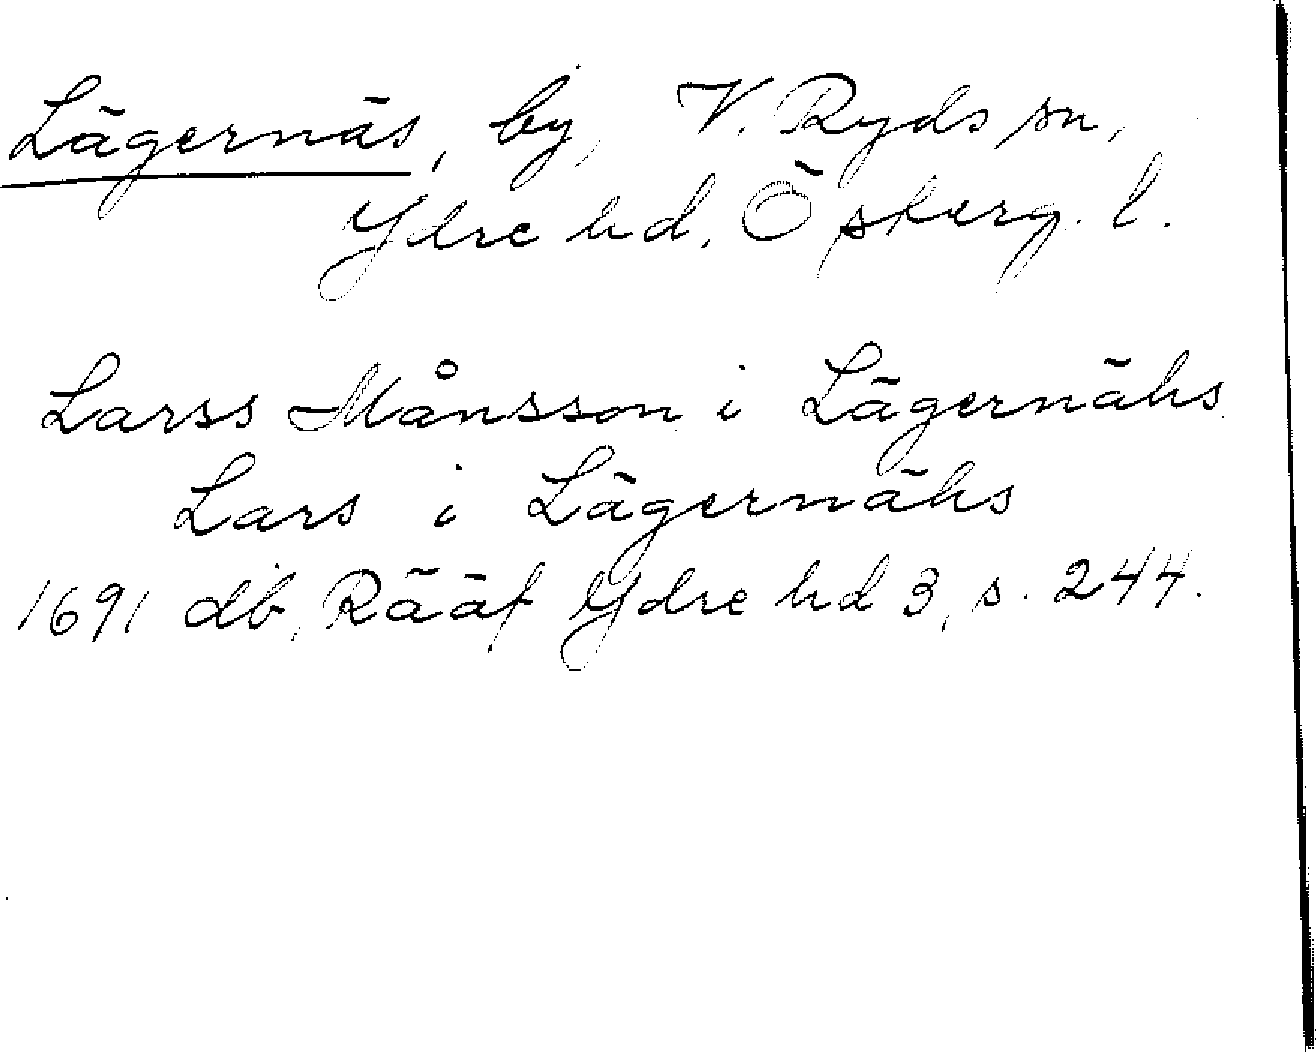 Lägernäs, by, V. Ryds sn,
Ydre hd, Ö
Larss Månsson i Lägernähs
Lars i Lägernähs
1691 db, Rääf Ydre hd 3, s. 244.